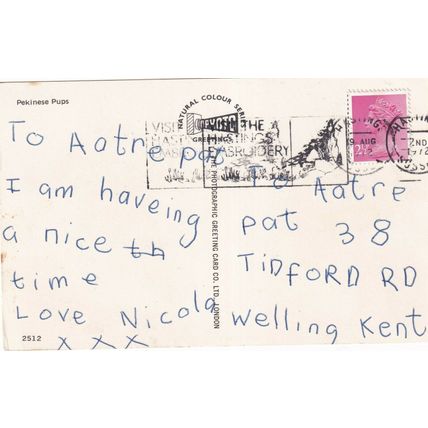 Pekinese Pups
To Aatre pat
I am haveing
a nice th
time
Love Nicola
x x x
2512
NATURAL COLOUR SERIES
GREETINGS
THE PHOTOGRAPHIC GREETING CARD CO. LTD. LONDON
VISIT THE
HASTINGS
EMBROIDERY
HASTINGS
AUG
1972
2½P
To Aatre
pat 38
TINFORD RD
Welling Kent